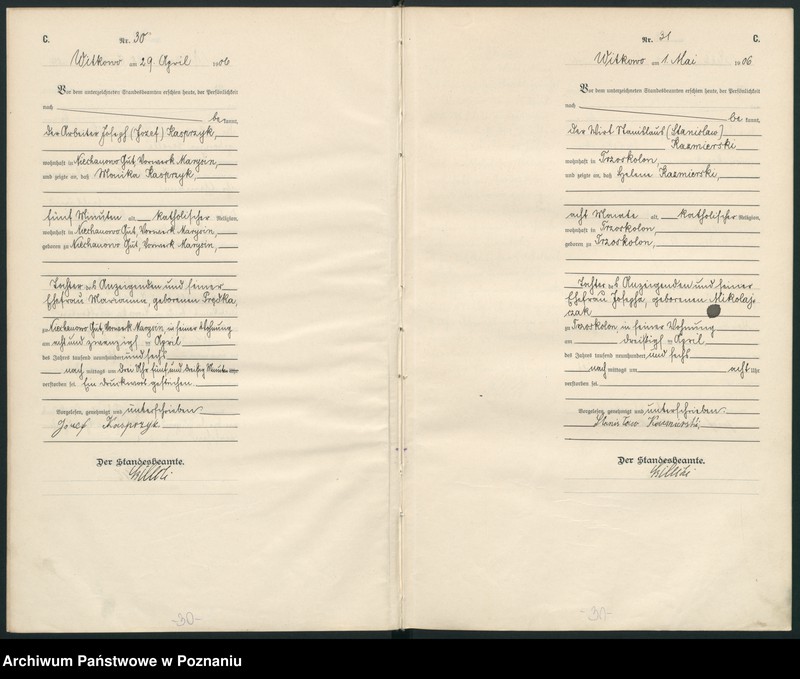 C.
Nr. 30
Witkowo am 29 April 1906
Vor dem unterzeichneten Standesbeamten erschien heute, der Persönlichkeit
nach
be kannt,
der Arbeiter Joseph (Józef) Kasprzyk,
wohnhaft in Niechanowo Gut, Vorwerk Marysin,
und zeigte an, daß Monika Kasprzyk,
fünf Minuten alt, katholischer Religion,
wohnhaft in Niechanowo Gut, Vorwerk Marysin,
geboren zu Niechanowo Gut, Vorwerk Marysin,
Tochter des Anzeigenden und seiner
Ehefrau Marianna, geborenen Prędka,
zu Niechanowo Gut, Vorwerk Marysin, in seiner Wohnung
am acht und zwanzigsten April
des Jahres tausend neunhundert und sechs
nach mittags um drei Uhr fünf und dreißig Minuten
verstorben sei. Ein Druckwort gestrichen.
Vorgelesen, genehmigt und unterschrieben.
Józef Kasprzyk
Der Standesbeamte.
-30-
Nr. 31
C.
Witkowo am 1 Mai 1906
Vor dem unterzeichneten Standesbeamten erschien heute, der Persönlichkeit
nach
be kannt,
der Wirt Stanislaus (Stanisław)
Kazmierski
wohnhaft in Trzoskolon,
und zeigte an, daß Helene Kazmierski,
acht Monate alt, katholischer Religion,
wohnhaft in Trzoskolon,
geboren zu Trzoskolon,
Tochter des Anzeigenden und seiner
Ehefrau Josepha, geborenen Mikołaj-
zak
zu Trzoskolon, in seiner Wohnung
am dreißigsten April
des Jahres tausend neunhundert und sechs
nach mittags um acht Uhr
verstorben sei.
Vorgelesen, genehmigt und unterschrieben.
Stanisław Kazmierski
Der Standesbeamte.
-31-
Archiwum Państwowe w Poznaniu